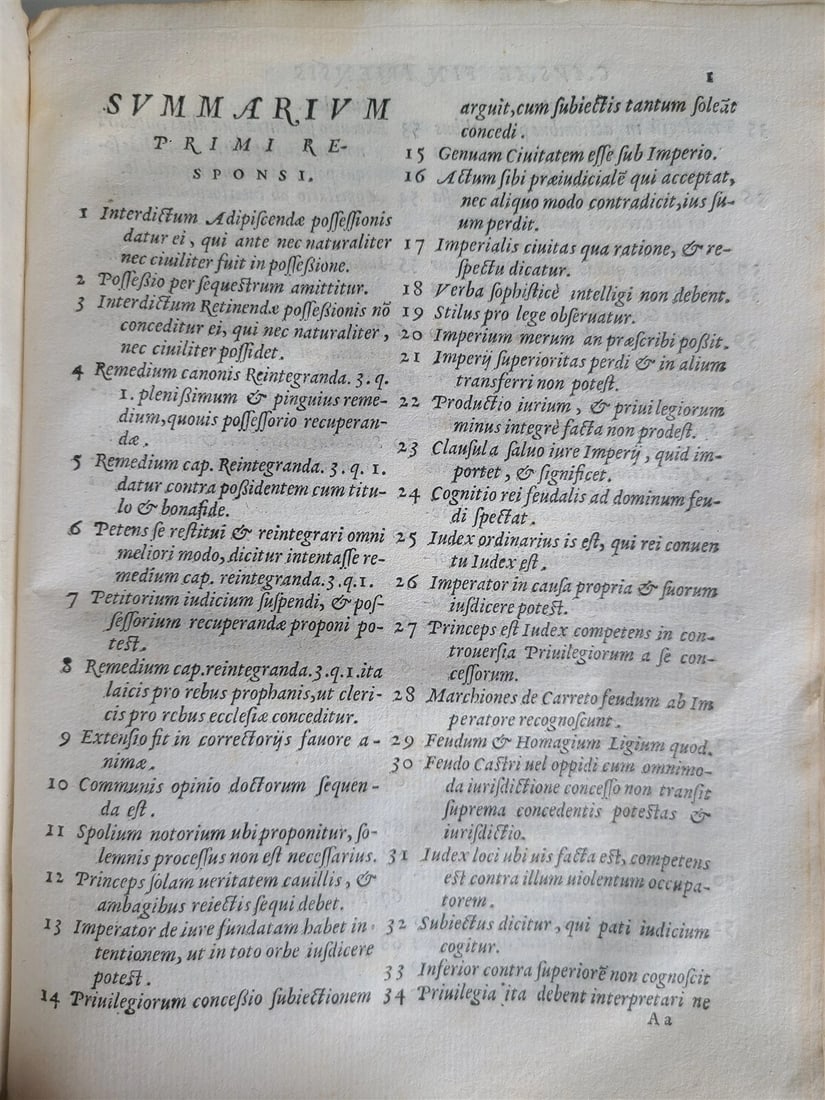 1
SVMMARIVM
PRIMI RE-
SPONSI.
1 Interdictum Adipiscendæ possessionis
datur ei, qui ante nec naturaliter
nec ciuiliter fuit in possessione.
2 Possessio per sequestrum amittitur.
3 Interdictum Retinendæ possessionis nō
conceditur ei, qui nec naturaliter,
nec ciuiliter possidet.
4 Remedium canonis Reintegranda. 3. q.
1. plenissimum & pinguius reme-
dium, quouis possessorio recuperan-
dæ.
5 Remedium cap. Reintegranda. 3. q. 1.
datur contra possidentem cum titu-
lo & bonafide.
6 Petens se restitui & reintegrari omni
meliori modo, dicitur intentasse re-
medium cap. reintegranda. 3. q. 1.
7 Petitorium iudicium suspendi, & pos-
sessorium recuperandæ proponi po-
test.
8 Remedium cap. reintegranda. 3. q. 1. ita
laicis pro rebus prophanis, ut cleri-
cis pro rebus ecclesiæ conceditur.
9 Extensio fit in correctorijs fauore a-
nimæ.
10 Communis opinio doctorum sequen-
da est.
11 Spolium notorium ubi proponitur, so-
lemnis processus non est necessarius.
12 Princeps solam ueritatem cauillis, &
ambagibus reiectis sequi debet.
13 Imperator de iure fundatam habet in-
tentionem, ut in toto orbe iusdicere
potest.
14 Priuilegiorum concessio subiectionem
arguit, cum subiectis tantum soleāt
concedi.
15 Genuam Ciuitatem esse sub Imperio.
16 Actum sibi præiudicialē qui acceptat,
nec aliquo modo contradicit, ius su-
um perdit.
17 Imperialis ciuitas qua ratione, & re-
spectu dicatur.
18 Verba sophisticè intelligi non debent.
19 Stilus pro lege obseruatur.
20 Imperium merum an præscribi possit.
21 Imperij superioritas perdi & in alium
transferri non potest.
22 Productio iurium, & priuilegiorum
minus integrè facta non prodest.
23 Clausula saluo iure Imperij, quid im-
portet, & significet.
24 Cognitio rei feudalis ad dominum feu-
di spectat.
25 Iudex ordinarius is est, qui rei conuen
tu Iudex est.
26 Imperator in causa propria & suorum
iusdicere potest.
27 Princeps est Iudex competens in con-
trouersia Priuilegiorum a se con-
cessorum.
28 Marchiones de Carreto feudum ab Im
peratore recognoscunt.
29 Feudum & Homagium Ligium quod.
30 Feudo Castri uel oppidi cum omnimo-
da iurisdictione concesso non transit
suprema concedentis potestas &
iurisdictio.
31 Iudex loci ubi uis facta est, competens
est contra illum uiolentum occupa-
torem.
32 Subiectus dicitur, qui pati iudicium
cogitur.
33 Inferior contra superiorē non cognoscit
34 Priuilegia ita debent interpretari ne
Aa